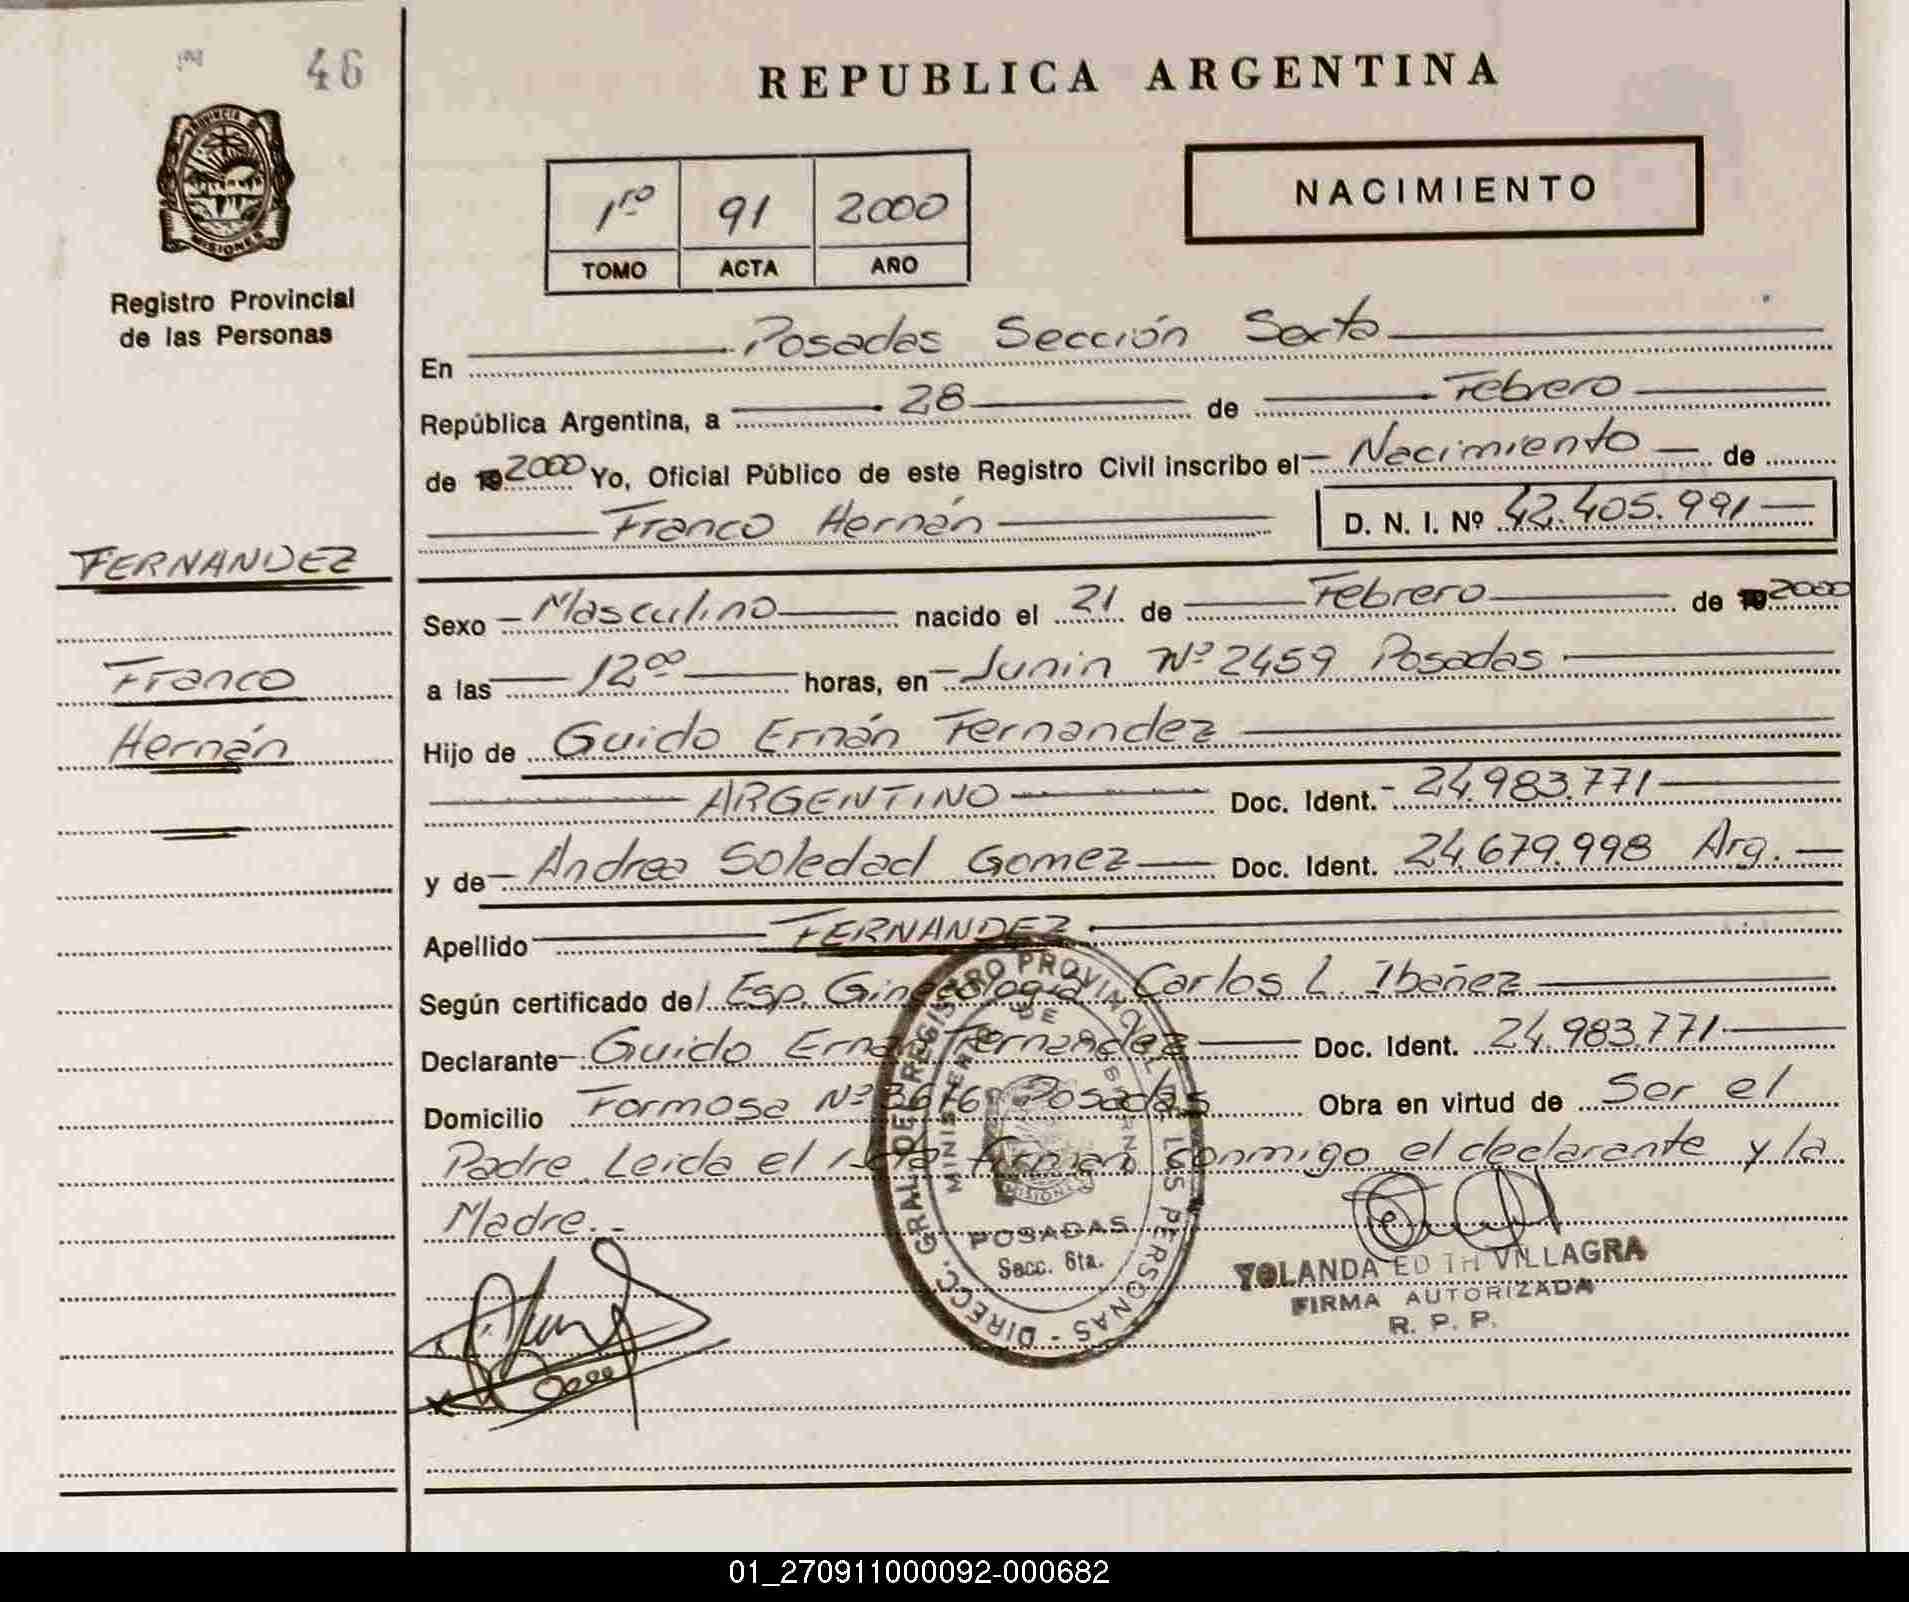 46
PROVINCIA DE
MISIONES
Registro Provincial
de las Personas
FERNANDEZ
Franco
Hernán
REPUBLICA ARGENTINA
1ro 91 2000
TOMO ACTA AÑO
NACIMIENTO
En Posadas Sección Sexta
República Argentina, a 28 de Febrero
de 19 2000 Yo, Oficial Público de este Registro Civil inscribo el Nacimiento de
Franco Hernán D. N. I. Nº 42.405.991
Sexo Masculino nacido el 21 de Febrero de 19 2000
a las 12 00 horas, en Junin Nº 2459 Posadas
Hijo de Guido Ernán Fernandez
ARGENTINO Doc. Ident. 24.983.771
y de Andrea Soledad Gomez Doc. Ident. 24.679.998 Arg.
Apellido FERNANDEZ
Según certificado del Esp. Ginecología Carlos L. Ibañez
Declarante Guido Ernán Fernandez Doc. Ident. 24.983.771
Domicilio Formosa Nº Posadas Obra en virtud de Ser el
Padre. Leida el acta firman conmigo el declarante y la
Madre.
DIRECC. GRAL. DEL REGISTRO PROVINCIAL DE LAS PERSONAS
MINISTERIO DE GOBIERNO
MISIONES
POSADAS
Secc. 6ta.
YOLANDA EDITH VILLAGRA
FIRMA AUTORIZADA
R. P. P.
01_270911000092-000682